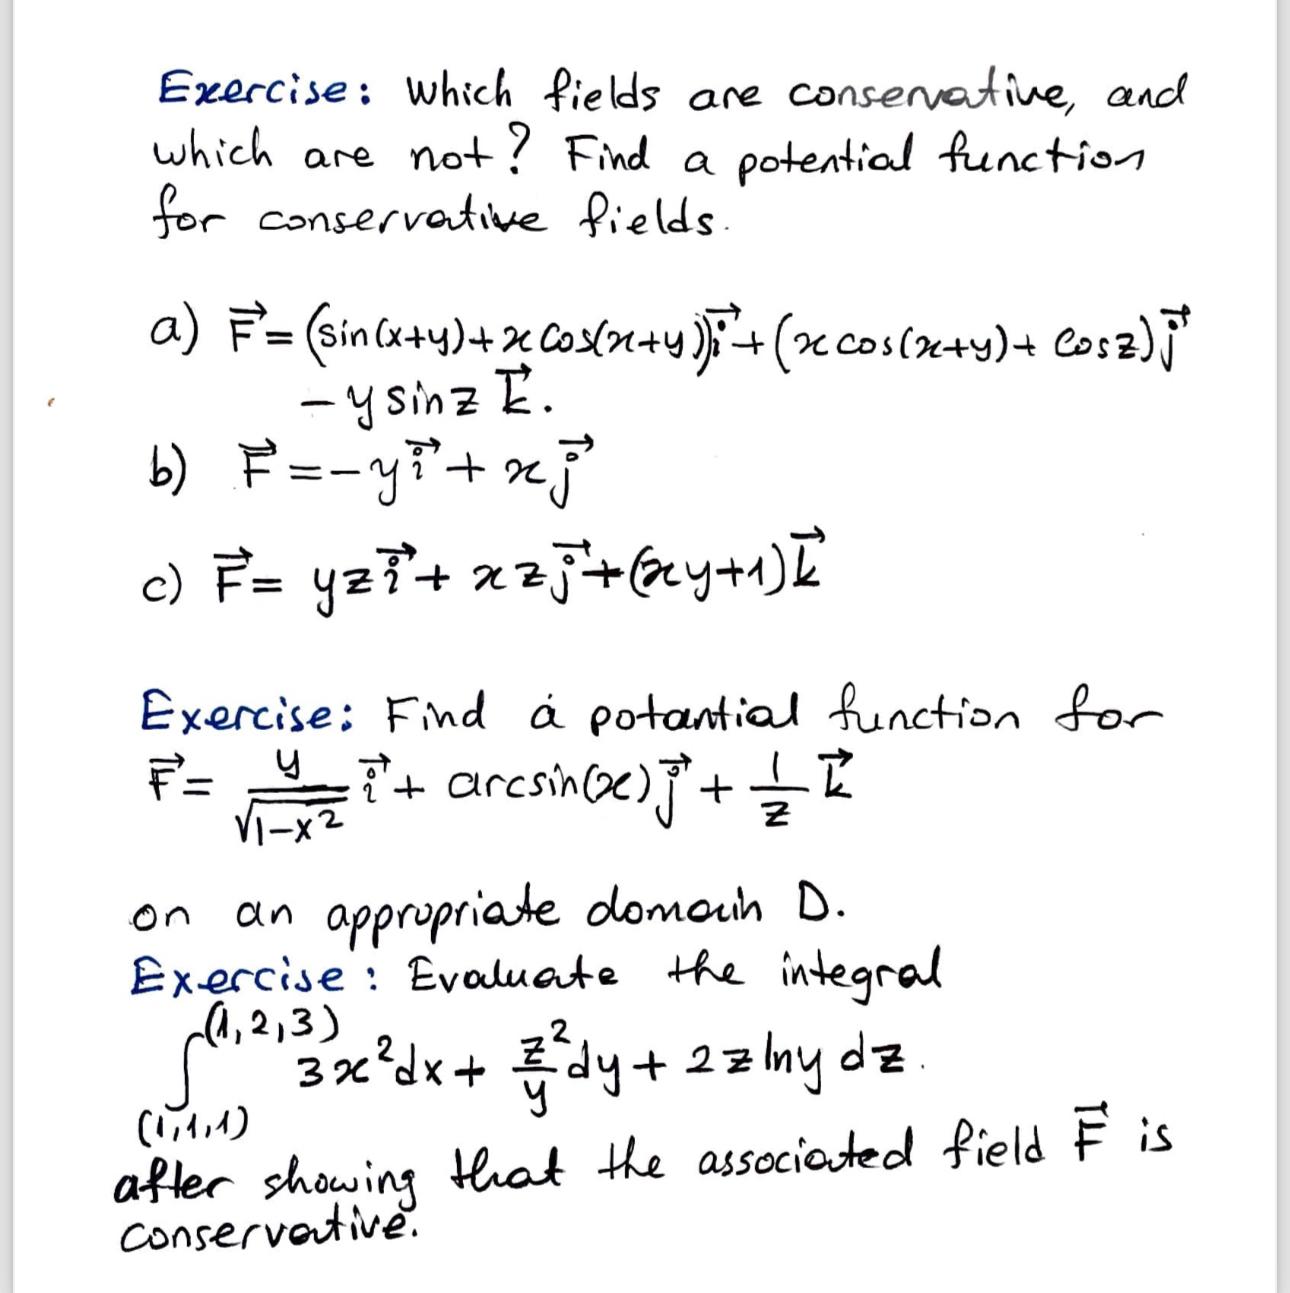 Exercise: Which fields are conservative, and
which are not? Find a potential function
for conservative fields.
a) F⃗ = (sin(x+y)+x cos(x+y))i⃗ + (x cos(x+y)+ cosz)j⃗
- y sinz k⃗.
b) F⃗ = -y i⃗ + x j⃗
c) F⃗ = yz i⃗ + xz j⃗ + (xy+1) k⃗
Exercise: Find a potantial function for
F⃗ = y/√(1-x²) i⃗ + arcsin(x) j⃗ + 1/z k⃗
on an appropriate domain D.
Exercise: Evaluate the integral
∫_(1,1,1)^(1,2,3) 3x²dx + z²/y dy + 2z lny dz.
after showing that the associated field F⃗ is
conservative.